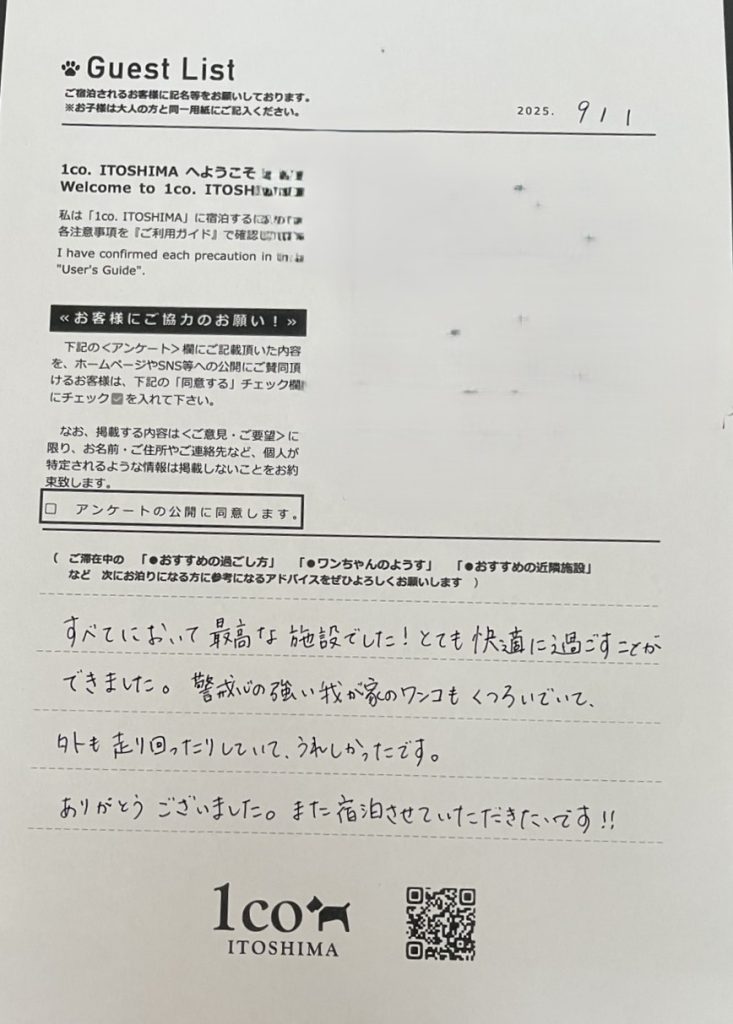 Guest List
ご宿泊されるお客様に記名等をお願いしております。
※お子様は大人の方と同一用紙にご記入ください。
2025. 9 / 1
1co. ITOSHIMA へようこそ
Welcome to 1co. ITOSH
私は「1co. ITOSHIMA」に宿泊する
各注意事項を『ご利用ガイド』で確認
I have confirmed each precaution in
"User's Guide".
≪お客様にご協力のお願い！≫
下記の＜アンケート＞欄にご記載頂いた内容
を、ホームページやSNS等への公開にご賛同頂
けるお客様は、下記の「同意する」チェック欄
にチェック☑を入れて下さい。
なお、掲載する内容は＜ご意見・ご要望＞に
限り、お名前・ご住所やご連絡先など、個人が
特定されるような情報は掲載しないことをお約
束致します。
□ アンケートの公開に同意します。
（ ご滞在中の 「●おすすめの過ごし方」 「●ワンちゃんのようす」 「●おすすめの近隣施設」
など 次にお泊りになる方に参考になるアドバイスをぜひよろしくお願いします ）
すべてにおいて最高な施設でした！とても快適に過ごすことが
できました。警戒心の強い我が家のワンコもくつろいでいて、
外も走り回ったりしていて、うれしかったです。
ありがとうございました。また宿泊させていただきたいです!!
1co
ITOSHIMA